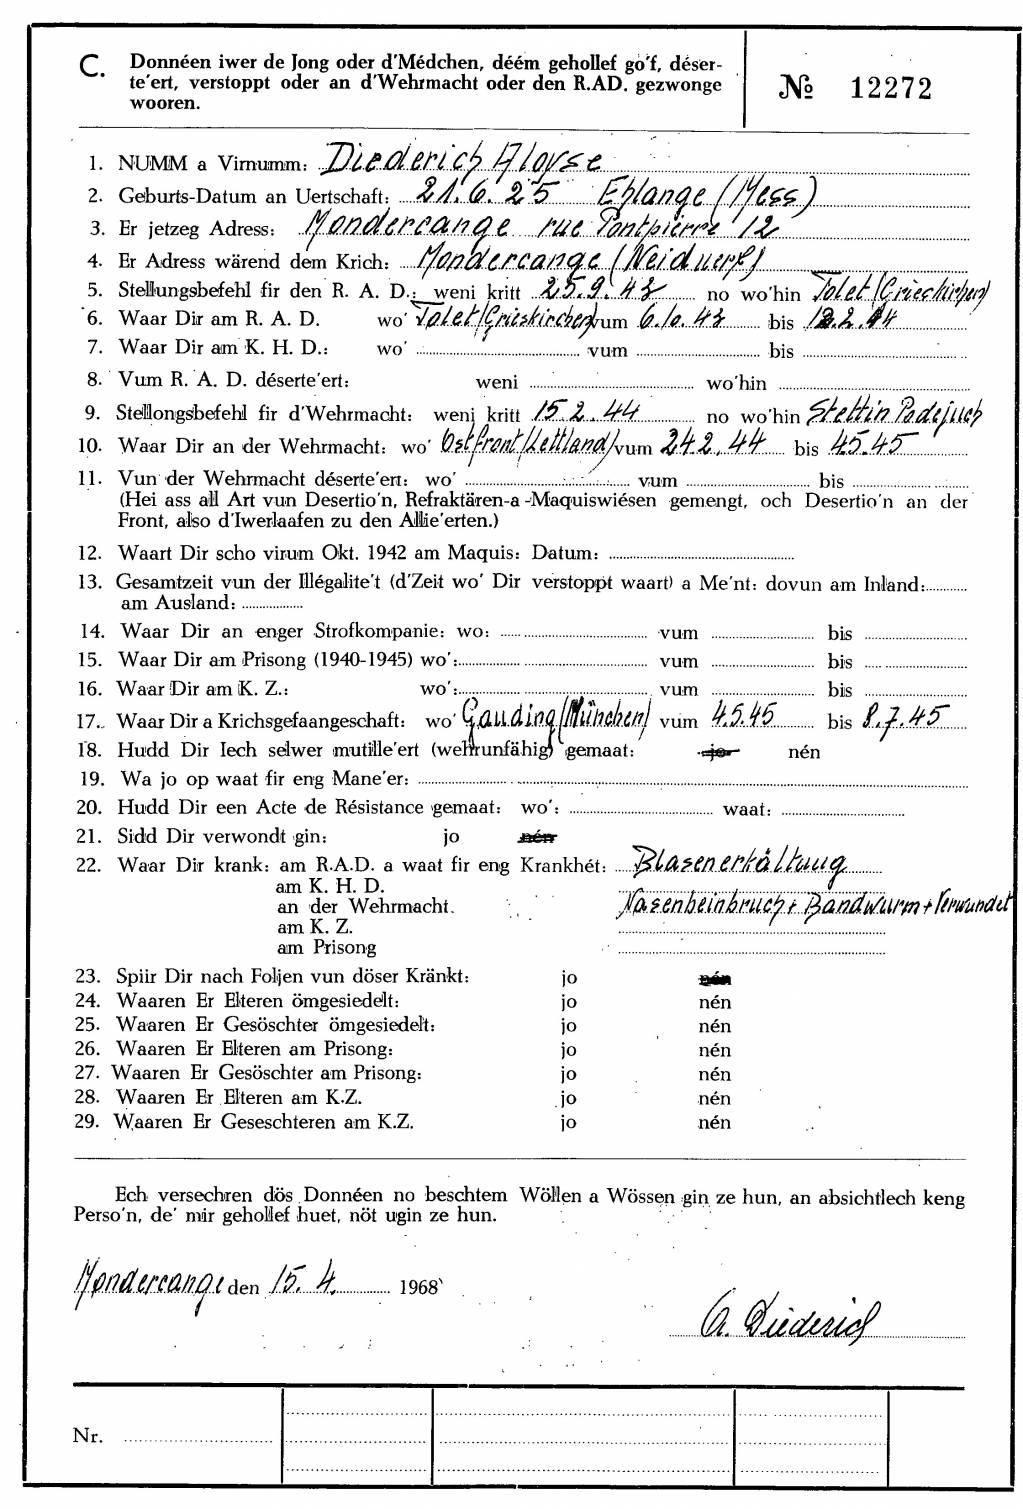 C. Donnéen iwer de Jong oder d'Médchen, déém gehollef go'f, déser-
te'ert, verstoppt oder an d'Wehrmacht oder den R.AD. gezwonge
wooren.
№ 12272
1. NUMM a Virnumm: Diederich Aloyse
2. Geburts-Datum an Uertschaft: 21.6.25 Ehlange (Mess)
3. Er jetzeg Adress: Mondercange rue Pontpierre 12
4. Er Adress wärend dem Krich: Mondercange (Neiduerf)
5. Stellungsbefehl fir den R. A. D.: weni kritt 25.9.43 no wo'hin Tolet/(Grieskirchen)
6. Waar Dir am R. A. D. wo' Tolet/(Grieskirchen) vum 6.10.43 bis 12.2.44
7. Waar Dir am K. H. D.: wo' vum bis
8. Vum R. A. D. déserte'ert: weni wo'hin
9. Stellongsbefehl fir d'Wehrmacht: weni kritt 15.2.44 no wo'hin Stettin Podejuch
10. Waar Dir an der Wehrmacht: wo' Ostfront/Lettland/ vum 24.2.44 bis 4.5.45
11. Vun der Wehrmacht déserte'ert: wo' vum bis
(Hei ass all Art vun Desertio'n, Refraktären-a-Maquiswiésen gemengt, och Desertio'n an der
Front, also d'Iwerlaafen zu den Allie'erten.)
12. Waart Dir scho virum Okt. 1942 am Maquis: Datum:
13. Gesamtzeit vun der Illégalite't (d'Zeit wo' Dir verstoppt waart) a Me'nt: dovun am Inland:
am Ausland:
14. Waar Dir an enger Strofkompanie: wo: vum bis
15. Waar Dir am Prisong (1940-1945) wo': vum bis
16. Waar Dir am K. Z.: wo': vum bis
17. Waar Dir a Krichsgefaangeschaft: wo' Gauding/München/ vum 4.5.45 bis 8.7.45
18. Hudd Dir Iech selwer mutille'ert (wehrunfähig) gemaat: jo nén
19. Wa jo op waat fir eng Mane'er:
20. Hudd Dir een Acte de Résistance gemaat: wo': waat:
21. Sidd Dir verwondt gin: jo nén
22. Waar Dir krank: am R.A.D. a waat fir eng Krankhét: Blasenerkältung
am K. H. D.
an der Wehrmacht. Nasenbeinbruch + Bandwurm + Verwundet
am K. Z.
am Prisong
23. Spiir Dir nach Foljen vun döser Kränkt: jo nén
24. Waaren Er Elteren ömgesiedelt: jo nén
25. Waaren Er Gesöschter ömgesiedelt: jo nén
26. Waaren Er Elteren am Prisong: jo nén
27. Waaren Er Gesöschter am Prisong: jo nén
28. Waaren Er Elteren am K.Z. jo nén
29. Waaren Er Geseschteren am K.Z. jo nén
Ech versechren dös Donnéen no beschtem Wöllen a Wössen gin ze hun, an absichtlech keng
Perso'n, de' mir gehollef huet, nöt ugin ze hun.
Mondercange den 15.4. 1968
A. Diederich
Nr.